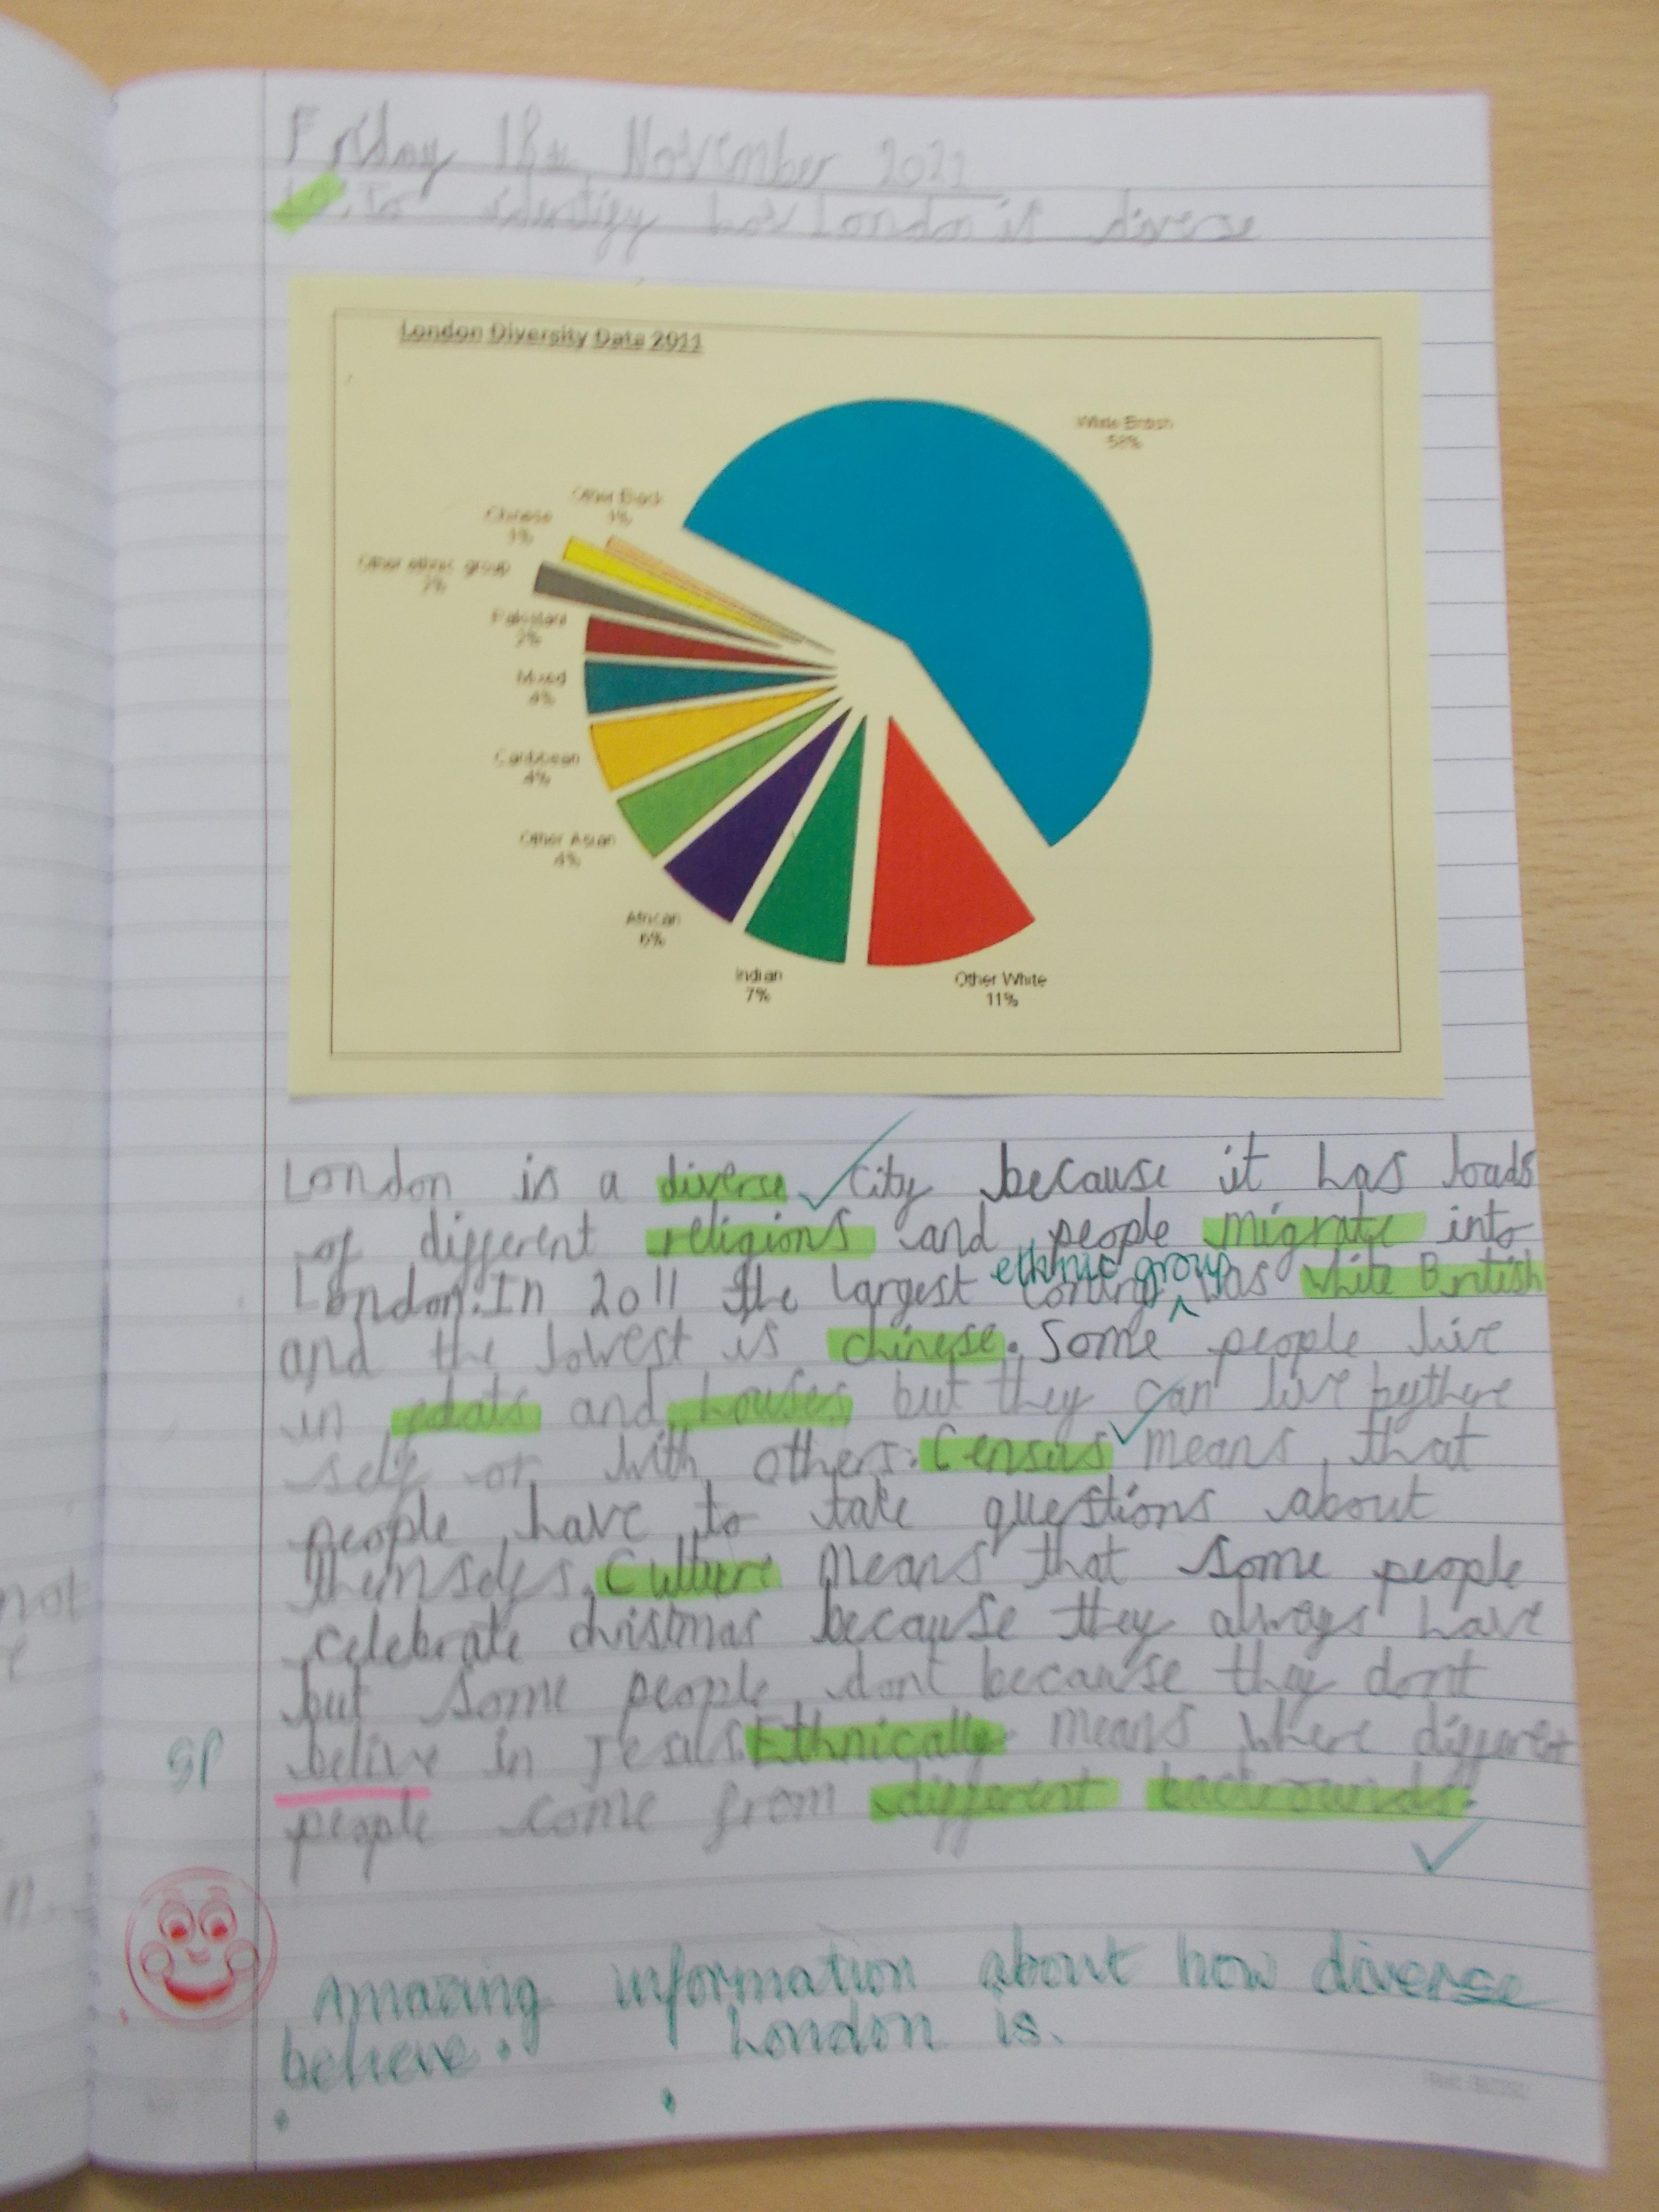 Friday 18th November 2022
LO: To identify how London is diverse
London Diversity Data 2011
White British
58%
Other Black
1%
Chinese
1%
Other ethnic group
2%
Pakistani
2%
Mixed
4%
Caribbean
4%
Other Asian
4%
African
6%
Indian
7%
Other White
11%
London is a diverse city because it has loads
of different religions and people migrate into
ethnic group
London. In 2011 the largest was white British
and the lowest is chinese. Some people live
in and houses but they can live by there
self or with others. Census means that
people have to take questions about
themselfs. Culture means that some people
celebrate christmas because they always have
but some people dont because they dont
SP
belive in Jesus. Ethnically means where different
people come from different backrounds.
Amazing information about how diverse
London is.
believe.